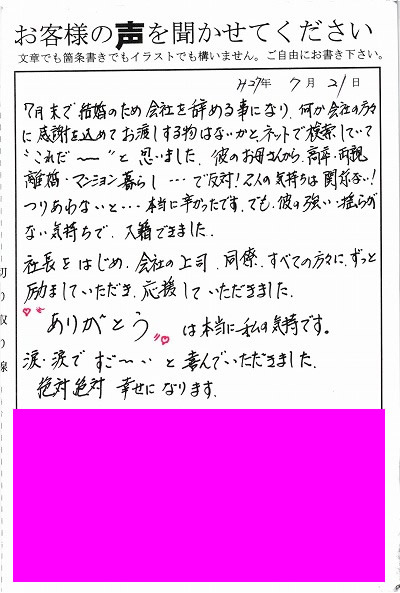 お客様の声を聞かせてください
文章でも箇条書きでもイラストでも構いません。ご自由にお書き下さい。
H27年 7月 21日
7月末で結婚のため会社を辞める事になり、何か会社の方々
に感謝を込めてお渡しする物はないかと、ネットで検索していて
"これだ〜〜"と思いました。彼のお母さんから、高卒・両親
離婚・マンション暮らし…で反対!2人の気持ちは関係ない!
つりあわないと…本当に辛かったです。でも、彼の強い揺らが
ない気持ちで、入籍できました。
社長をはじめ、会社の上司、同僚、すべての方々に、ずっと
励ましていただき、応援していただきました。
"ありがとう"は本当に私の気持です。
涙・涙ですご〜〜いと喜んでいただきました。
絶対絶対 幸せになります。
切り取り線